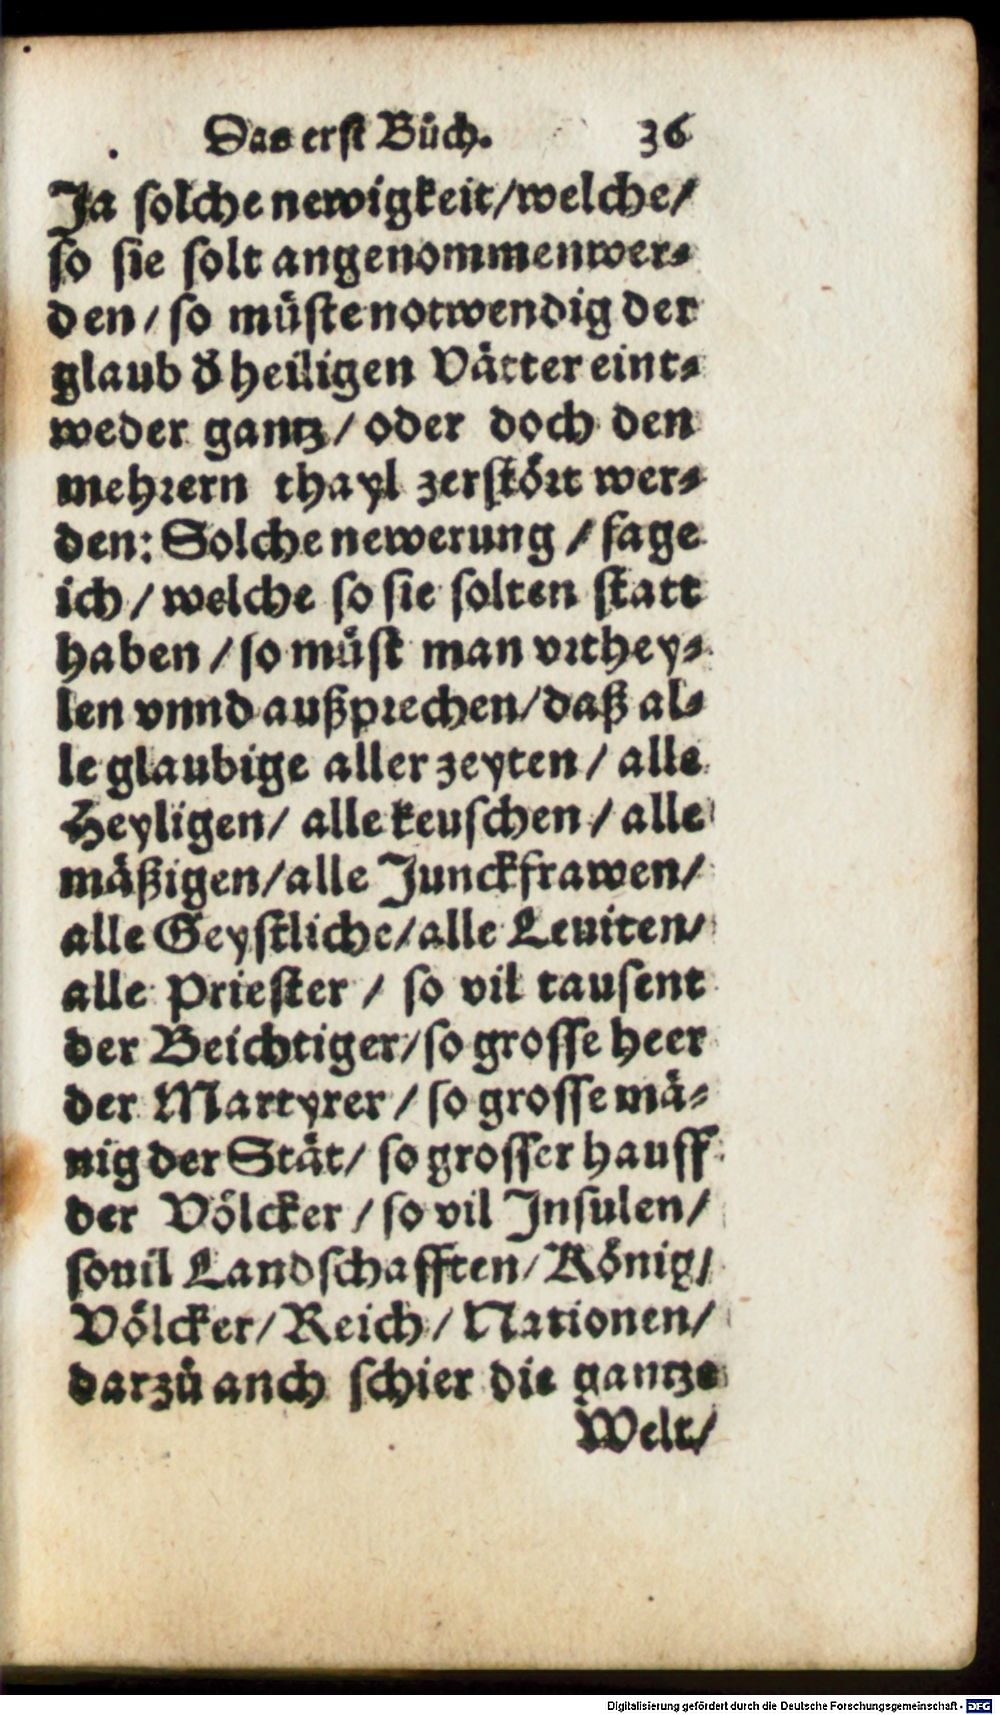 Das erst Bůch. 36
Ja solche newigkeit/welche/
so sie solt angenommen wer⸗
den/ so müste notwendig der
glaub d̕ heiligen Vätter eint⸗
weder gantz/ oder doch den
mehrern thayl zerstört wer⸗
den: Solche newerung/ sage
ich/ welche so sie solten statt
haben/ so müst man vrthey⸗
len vnnd außprechen/daß al⸗
le glaubige aller zeyten/ alle
Heyligen/ alle keuschen/ alle
mäßigen/alle Junckfrawen/
alle Geystliche/alle Leuiten/
alle Priester/ so vil tausent
der Beichtiger/so grosse heer
der Martyrer/ so grosse mä⸗
nig der Stät/ so grosser hauff
der Völcker/ so vil Insulen/
souil Landschafften/ König/
Völcker/ Reich/ Nationen/
darzů anch schier die gantze
Welt/
Digitalisierung gefördert durch die Deutsche Forschungsgemeinschaft - DFG